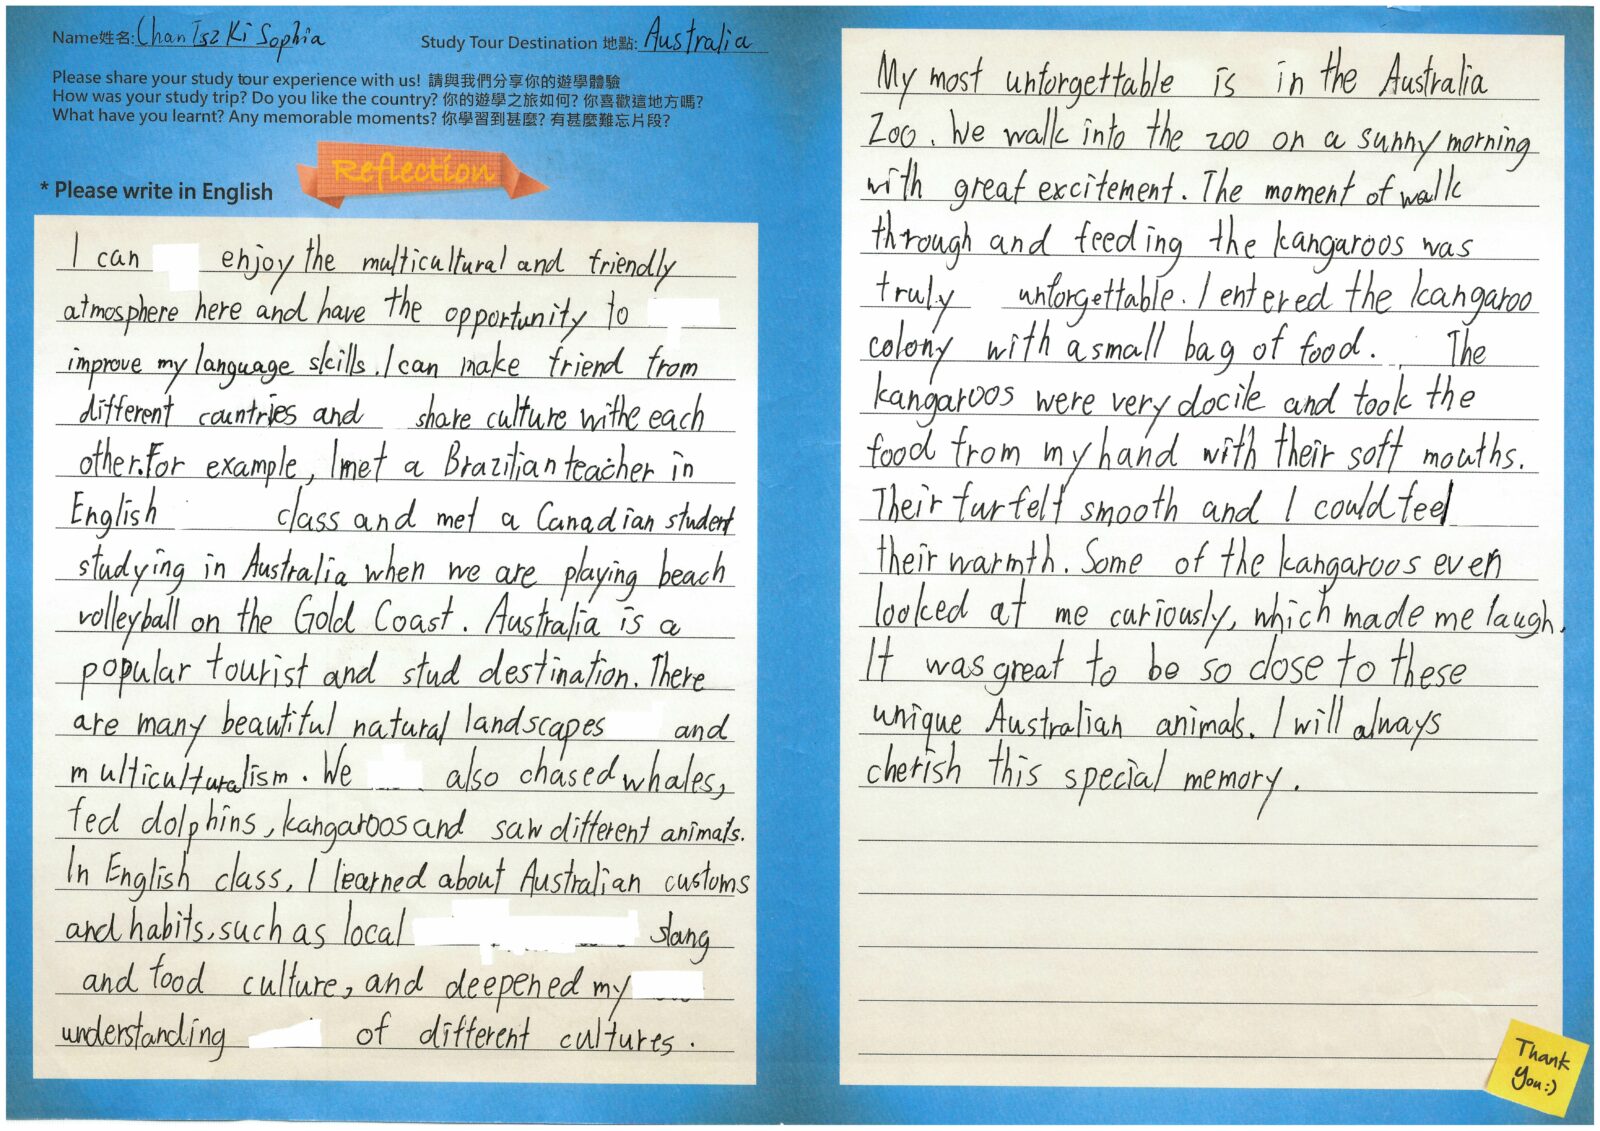 Name姓名: Chan Tsz Ki Sophia
Study Tour Destination 地點: Australia
Please share your study tour experience with us! 請與我們分享你的遊學體驗
How was your study trip? Do you like the country? 你的遊學之旅如何? 你喜歡這地方嗎?
What have you learnt? Any memorable moments? 你學習到甚麼? 有甚麼難忘片段?
Reflection
* Please write in English
I can enjoy the multicultural and friendly
atmosphere here and have the opportunity to
improve my language skills. I can make friend from
different countries and share culture withe each
other. For example, I met a Brazilian teacher in
English class and met a Canadian student
studying in Australia when we are playing beach
volleyball on the Gold Coast. Australia is a
popular tourist and stud destination. There
are many beautiful natural landscapes and
multiculturalism. We also chased whales,
fed dolphins, kangaroos and saw different animals.
In English class, I learned about Australian customs
and habits, such as local slang
and food culture, and deepened my
understanding of different cultures.
My most unforgettable is in the Australia
Zoo. We walk into the zoo on a sunny morning
with great excitement. The moment of walk
through and feeding the kangaroos was
truly unforgettable. I entered the kangaroo
colony with a small bag of food. The
kangaroos were very docile and took the
food from my hand with their soft mouths.
Their fur felt smooth and I could feel
their warmth. Some of the kangaroos even
looked at me curiously, which made me laugh.
It was great to be so close to these
unique Australian animals. I will always
cherish this special memory.
Thank
You:)